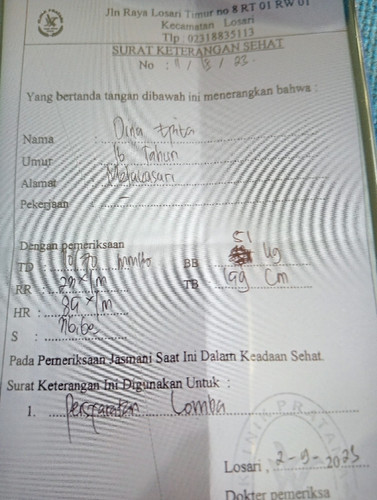 Jln Raya Losari Timur no 8 RT 01 RW 01
Kecamatan Losari
Tlp 02318835113
SURAT KETERANGAN SEHAT
No : 11 / 3 / 23.
Yang bertanda tangan dibawah ini menerangkan bahwa :
Nama : Dina
Umur : 16 Tahun
Alamat :
Pekerjaan :
Dengan pemeriksaan
TD : mmHg BB 51 kg
RR : x/m TB : Cm
HR : x/m
S :
Pada Pemeriksaan Jasmani Saat Ini Dalam Keadaan Sehat.
Surat Keterangan Ini Digunakan Untuk :
1. Persyaratan Lomba
Losari , 2 - 9 - 2023
Dokter pemeriksa